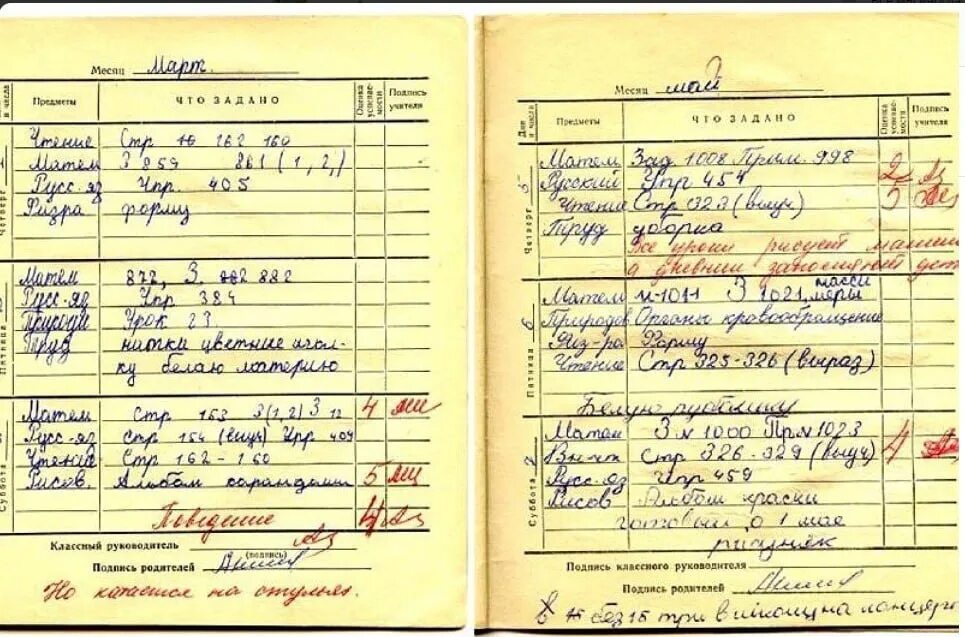 Месяц Март.
Дни и числа Предметы ЧТО ЗАДАНО Оценка успеваемости Подпись учителя
Четверг 1
Чтение Стр 162 160
Матем З 859 861 (1, 2,)
Русс-яз Упр. 405
Физра форму
Пятница 2
Матем 872, З. 882
Русс-яз Упр 384
Природ Урок 23
Труд нитки цветные игол-
ку белаю материю
Суббота 3
Матем Стр 153 З(1,2) З 12 4
Русс-яз Стр 154 (выуч) Упр 404
Чтение Стр 162-160
Рисов. Альбом карандаши 5
Поведение 4
Классный руководитель
(подпись)
Подпись родителей
Но катался на стульях.
Месяц май
Дни и числа Предметы ЧТО ЗАДАНО Оценка успеваемости Подпись учителя
Четверг 5
Матем Зад. 1008 Прим. 998 2
Русский Упр 454 5
Чтение Стр 323 (выуч)
Труд уборка
Все уроки рисует
а дневник
Пятница 6
Матем N-1011 З 1021, массы меры
Природов Органы кровообращение
Физ-ра Форму
Чтение Стр 325-326 (выраз)
Белую рубашку
Суббота 7
Матем З N 1000 Пр. N 1023 4
Вн-чт Стр 326-329 (выуч)
Русс-яз Упр 459
Рисов Альбом краски
о 1 мае
Подпись классного руководителя
Подпись родителей
В без 15 три в школу на